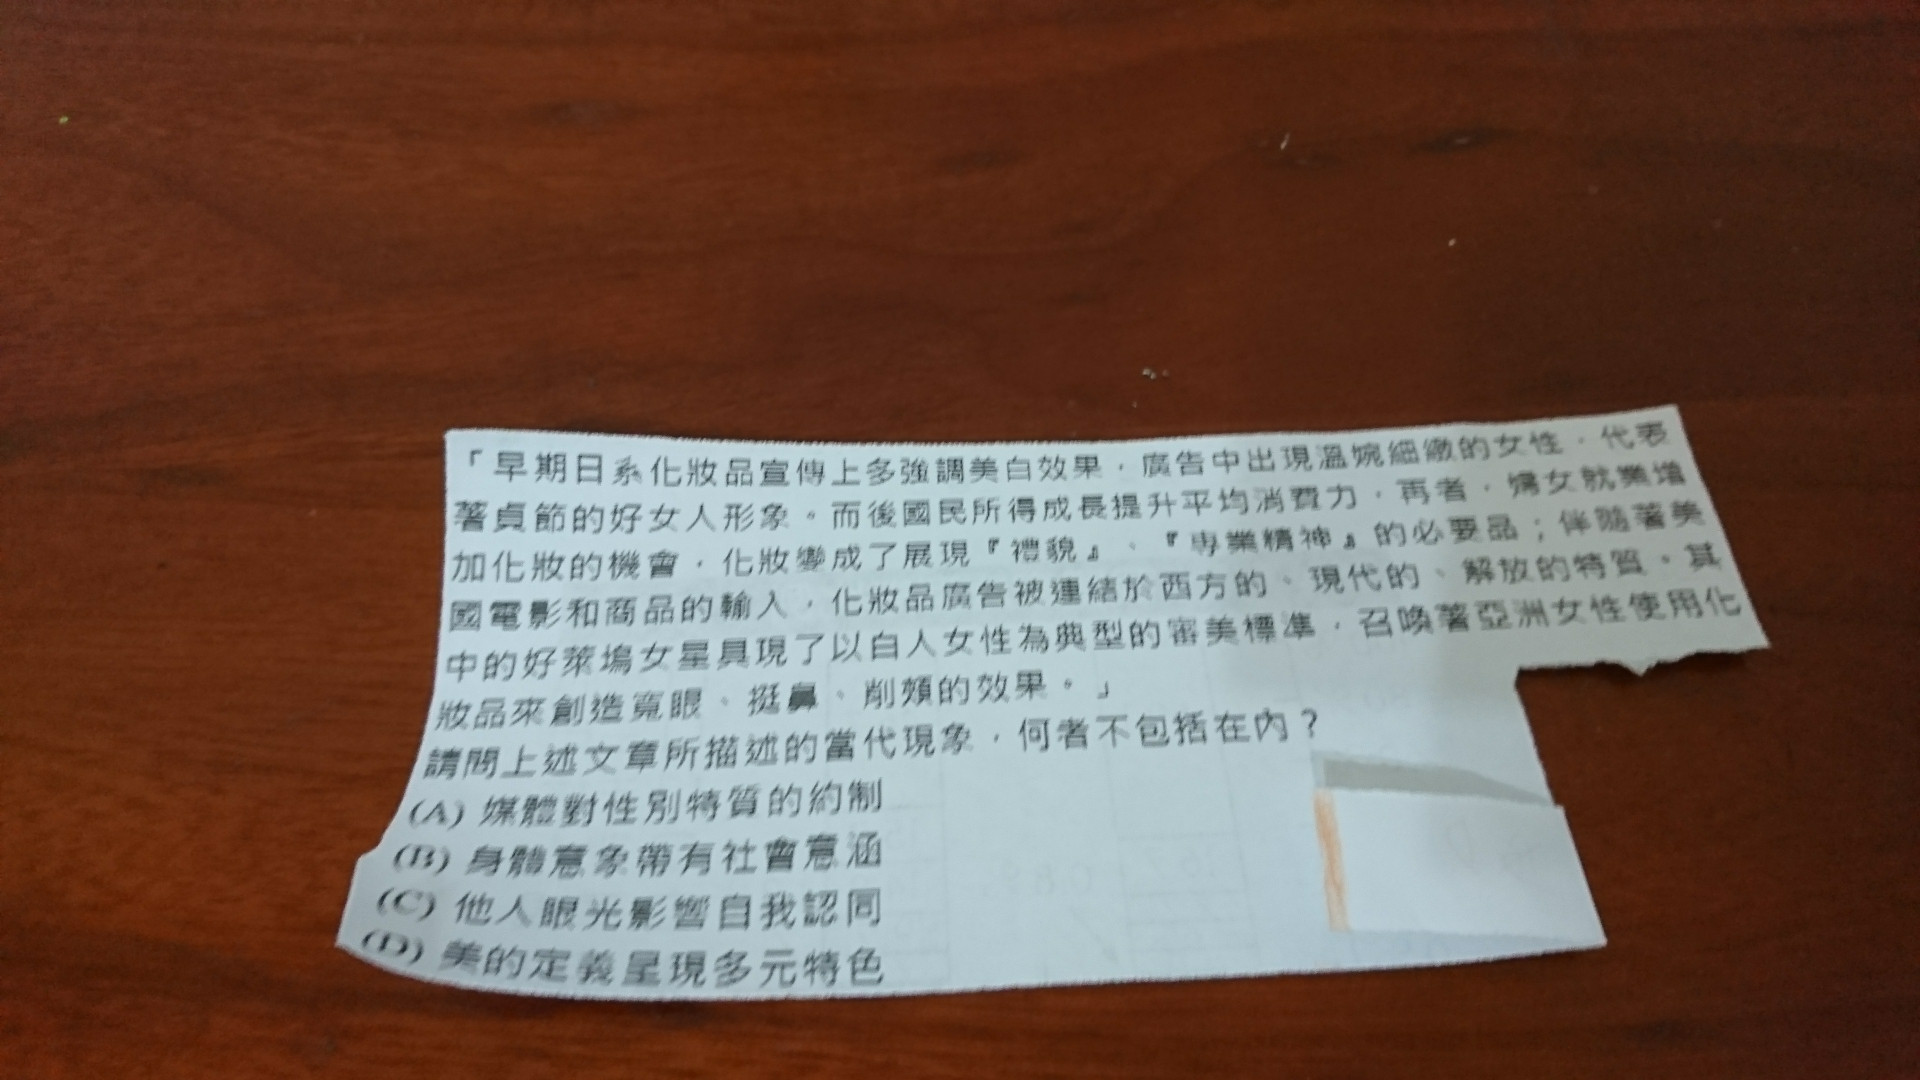 「早期日系化妝品宣傳上多強調美白效果，廣告中出現溫婉細緻的女性，代表
著貞節的好女人形象。而後國民所得成長提升平均消費力，再者，婦女就業增
加化妝的機會，化妝變成了展現『禮貌』、『專業精神』的必要品；伴隨著美
國電影和商品的輸入，化妝品廣告被連結於西方的、現代的、解放的特質。其
中的好萊塢女星具現了以白人女性為典型的審美標準，召喚著亞洲女性使用化
妝品來創造寬眼、挺鼻、削頰的效果。」
請問上述文章所描述的當代現象，何者不包括在內？
(A) 媒體對性別特質的約制
(B) 身體意象帶有社會意涵
(C) 他人眼光影響自我認同
(D) 美的定義呈現多元特色